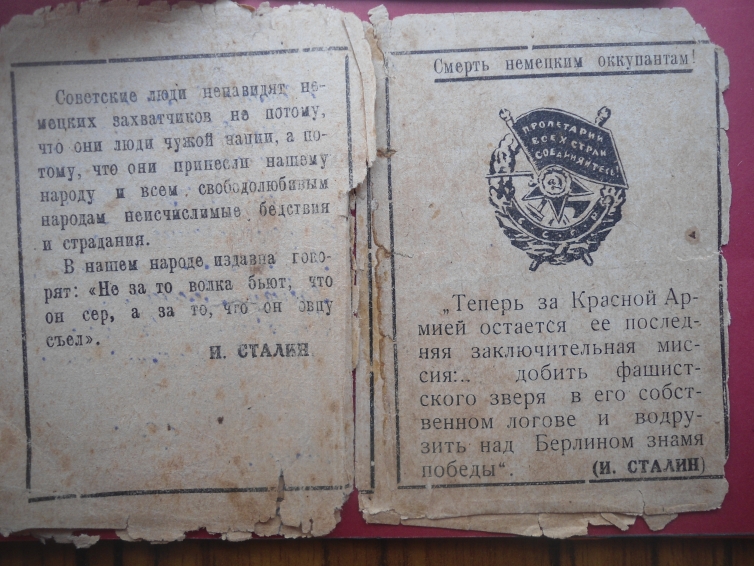 Советские люди ненавидят не-
мецких захватчиков не потому,
что они люди чужой нации, а по-
тому, что они принесли нашему
народу и всем свободолюбивым
народам неисчислимые бедствия
и страдания.
В нашем народе издавна гово-
рят: «Не за то волка бьют, что
он сер, а за то, что он овцу
съел».
И. СТАЛИН
Смерть немецким оккупантам!
ПРОЛЕТАРИИ
ВСЕХ СТРАН
СОЕДИНЯЙТЕСЬ
СССР
„Теперь за Красной Ар-
мией остается ее послед-
няя заключительная мис-
сия:.. добить фашист-
ского зверя в его собст-
венном логове и водру-
зить над Берлином знамя
победы“.
(И. СТАЛИН)